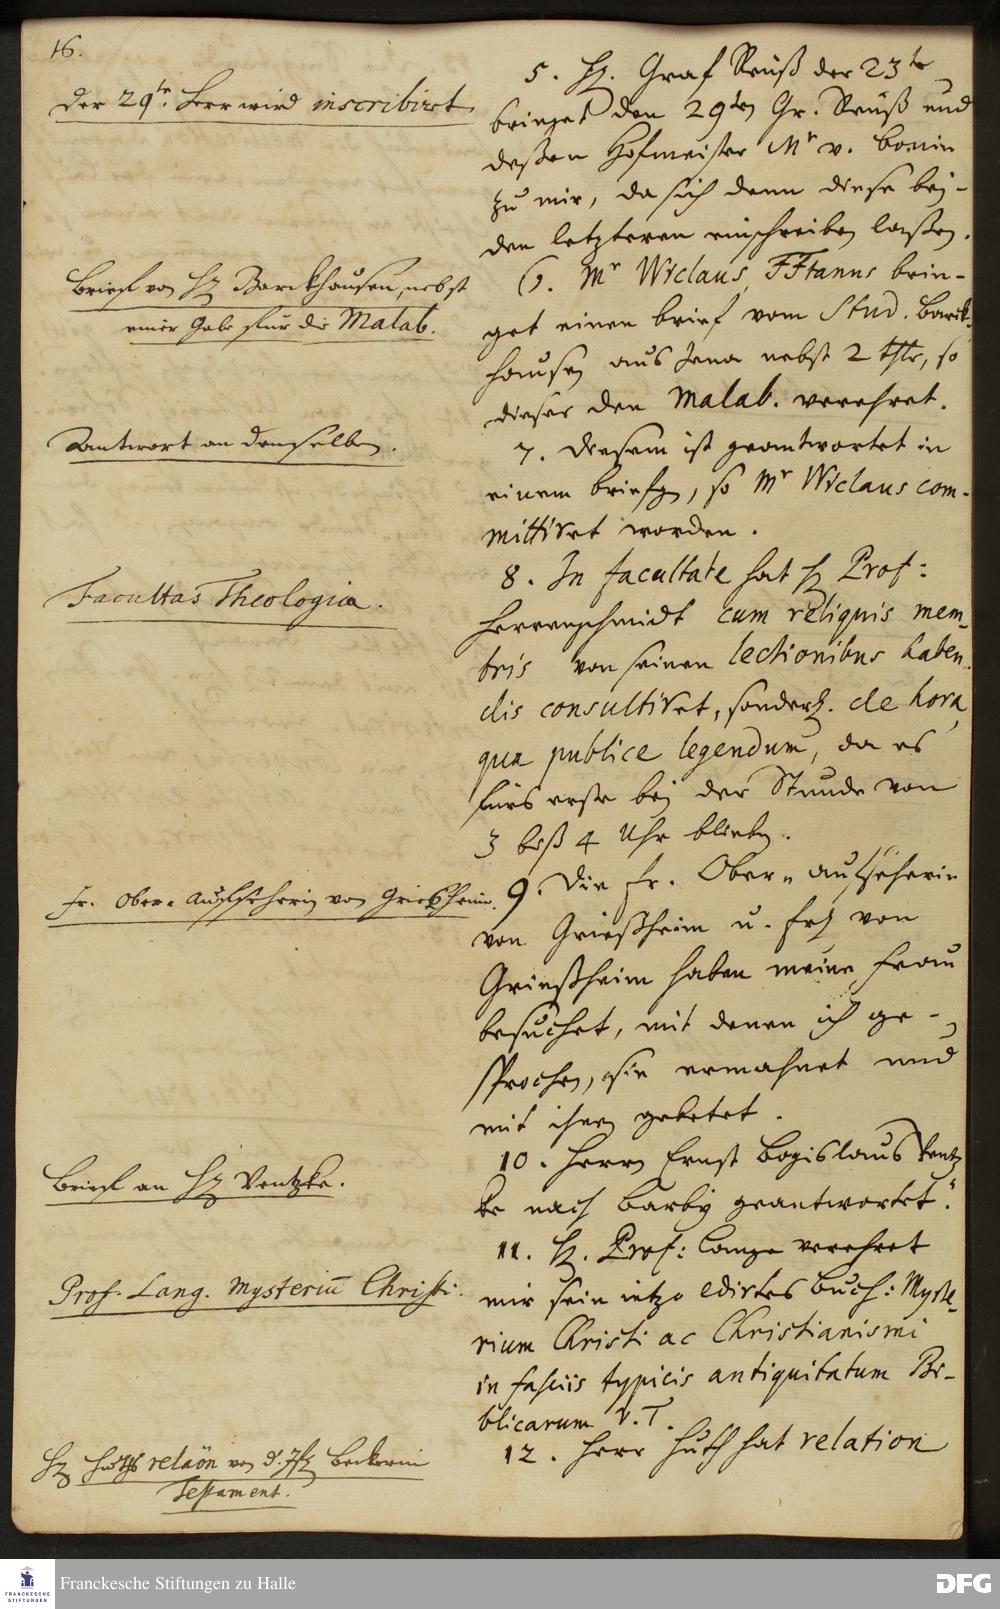 16.
Der 29te Herr wird inscribirt
5. H. Graf Reuß der 23te
bringet den 29ten Gr. Reuß und
deßen Hofmeister Mr v. Bonin
zu mir, da sich denn diese bey-
den letzteren einschreiben laßen.
Brief von H. Barckhausen, nebst
einer Gabe für die Malab.
6. Mr Wiclaus brin-
get einen brief vom Stud. Barck-
hausen aus Jena nebst 2 thlr, so
dieser den Malab. verehret.
Antwort an denselben.
7. Diesem ist geantwortet in
einem briefg, so Mr Wiclaus com-
mittiret worden.
Facultas Theologica.
8. In facultate hat H. Prof:
Herrnschmidt cum reliquis mem-
bris von seinen lectionibus haben-
dis consultiret, sonderl. de hora,
qua publice legendum, da es
fürs erste bey der Stunde von
3 biß 4 Uhr blieben.
Fr. Ober-Aufseherin von Griesheim.
9. Die Fr. Ober-aufseherin
von Grießheim u. Frl von
Grießheim haben meine Frau
besuchet, mit denen ich ge-
sprochen, sie ermahnet und
mit ihnen gebetet.
Brief an H. Ventzke.
10. Herrn Ernst Bogislaus Ventz
ke nach Barby geantwortet.
Prof. Lang. Mysteriū Christi.
11. H. Prof: Lange verehret
mir sein ietzo edirtes Buch: Myste-
rium Christi ac Christianismi
in fasciis typicis antiquitatum Bi-
blicarum V. T.
H. Huths relaōn von Beckerin
Testament.
12. Herr Huth hat relation
Franckesche Stiftungen zu Halle
FRANCKESCHE
STIFTUNGEN
DFG